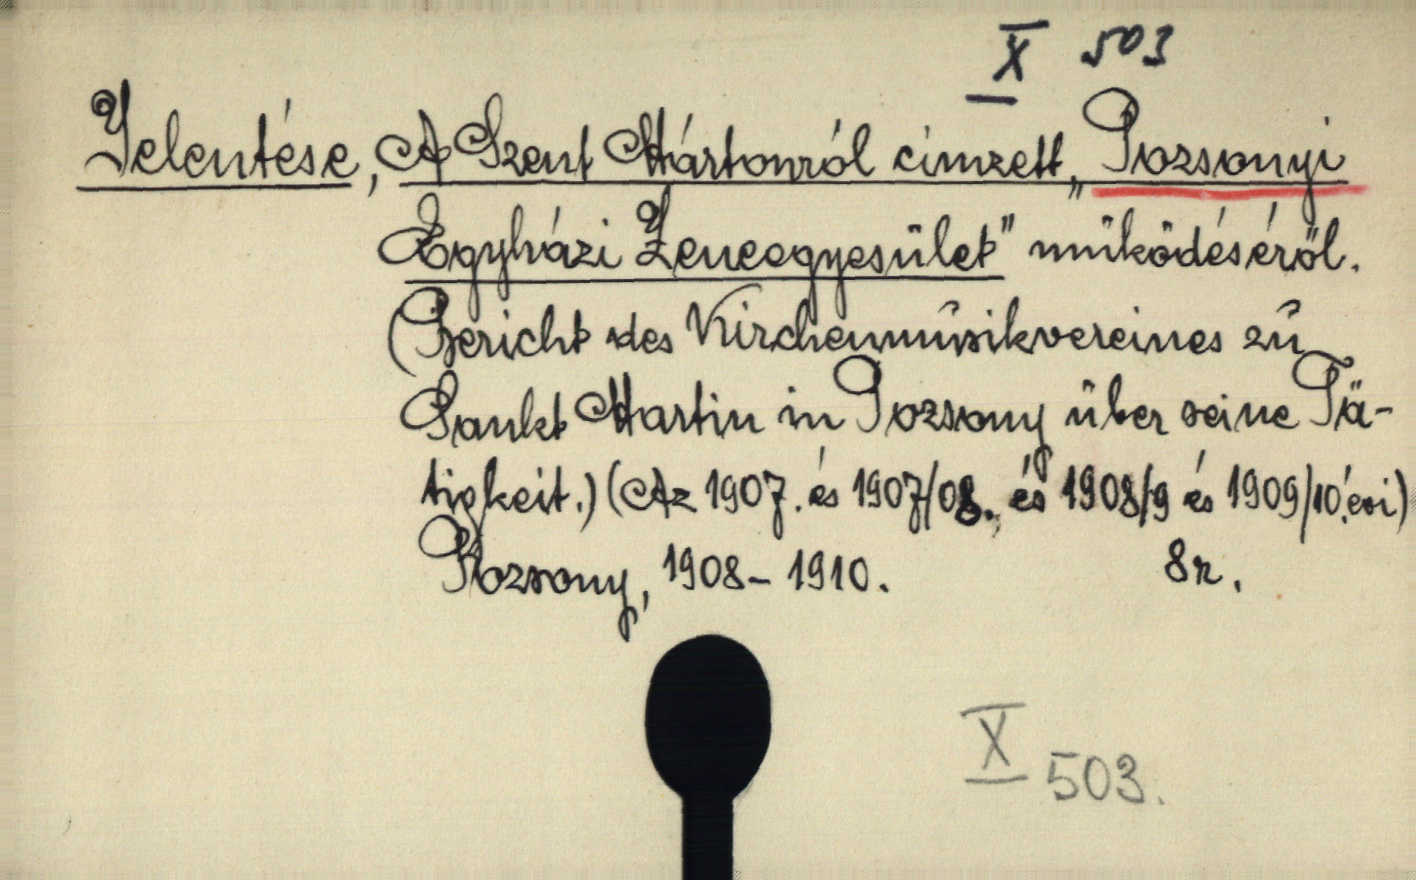 X 503
Jelentése, A Szent Mártonról cimzett „Pozsonyi
Egyházi Zeneegyesület" működéséről.
(Bericht des Kirchenmusikvereines zu
Sankt Martin in Pozsony über seine Tä-
tigkeit.) (Az 1907. és 1907/08. és 1908/9 és 1909/10. évi)
Pozsony, 1908-1910. 8r.
X 503.